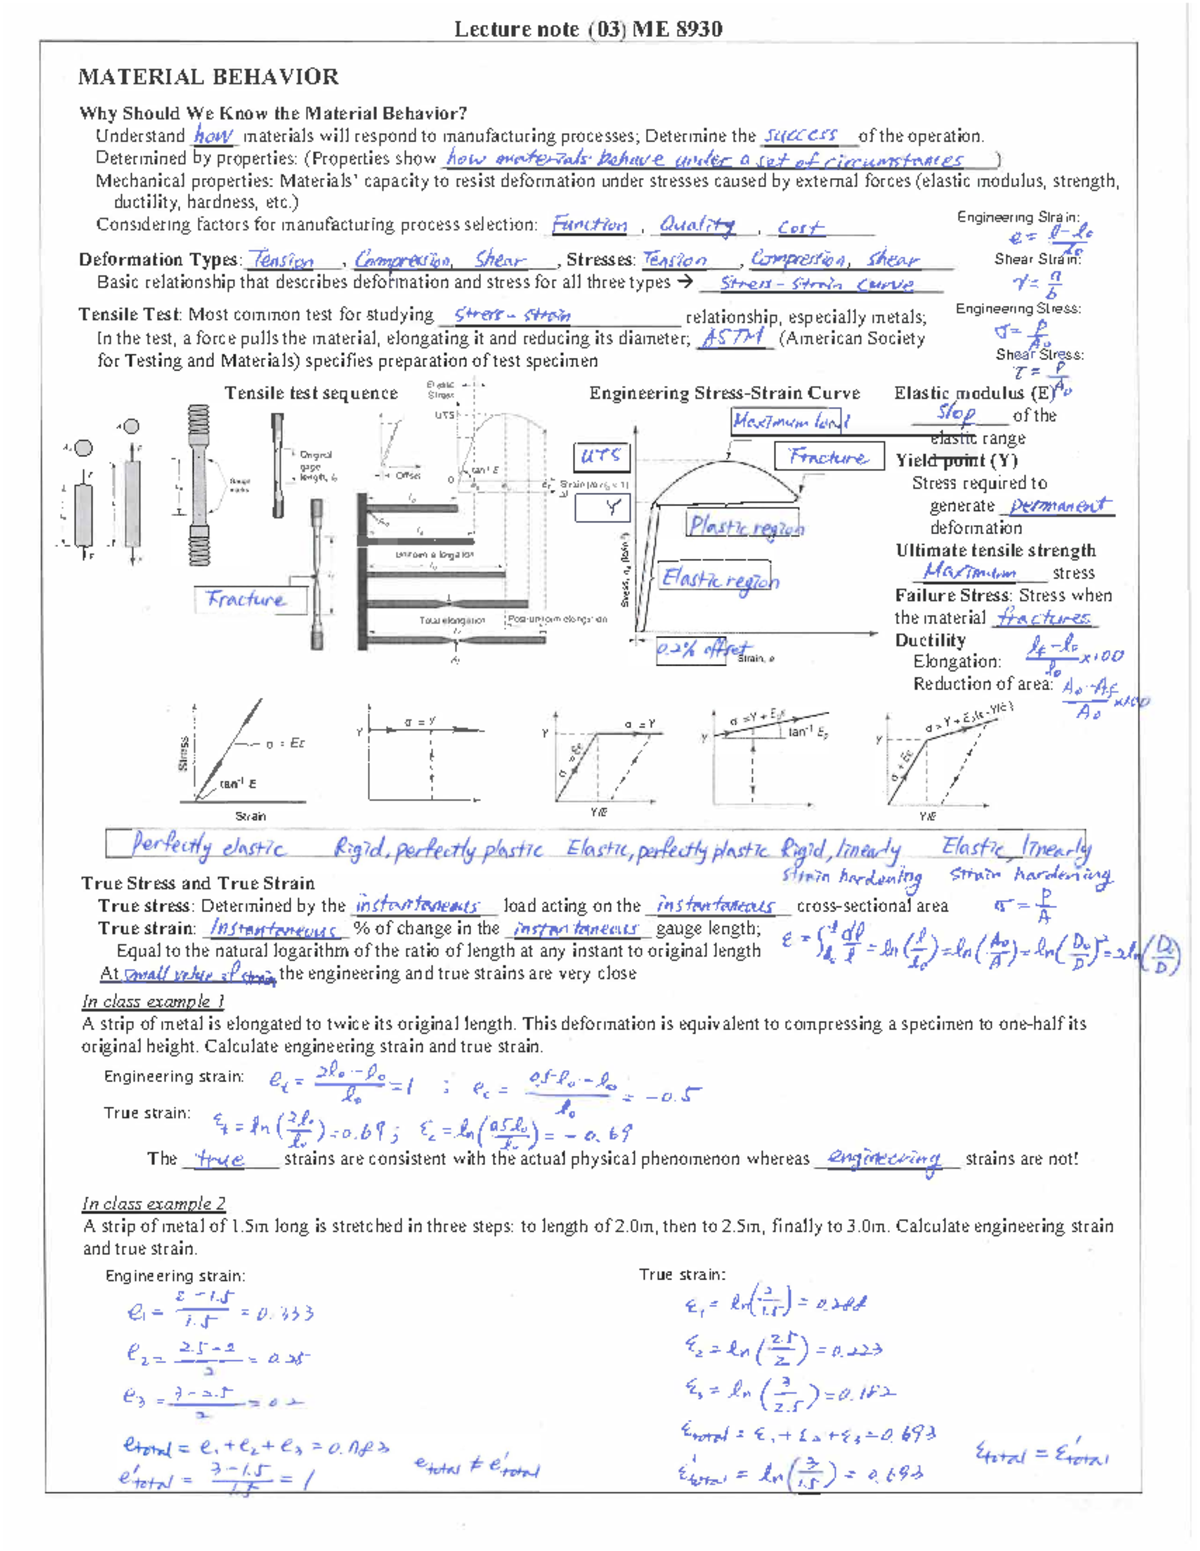 Lecture note (03) ME 8930
MATERIAL BEHAVIOR
Why Should We Know the Material Behavior?
Understand how materials will respond to manufacturing processes; Determine the success of the operation.
Determined by properties: (Properties show how materials behave under a set of circumstances)
Mechanical properties: Materials' capacity to resist deformation under stresses caused by external forces (elastic modulus, strength,
ductility, hardness, etc.)
Considering factors for manufacturing process selection: Function, Quality, Cost
Engineering Strain:
e = l-l₀/l₀
Deformation Types: Tension, Compression, Shear, Stresses: Tension, Compression, Shear
Shear Strain:
γ = a/b
Basic relationship that describes deformation and stress for all three types → Stress-Strain Curve
Tensile Test: Most common test for studying Stress-Strain relationship, especially metals;
Engineering Stress:
σ = P/A₀
In the test, a force pulls the material, elongating it and reducing its diameter; ASTM (American Society
for Testing and Materials) specifies preparation of test specimen
Shear Stress:
τ = P/A₀
Tensile test sequence
Engineering Stress-Strain Curve
Elastic modulus (E)
Slop of the
elastic range
Yield point (Y)
Stress required to
generate permanent
deformation
Ultimate tensile strength
Maximum stress
Failure Stress: Stress when
the material fractures
Ductility
Elongation: lf-l₀/l₀ x100
Reduction of area: A₀-Af/A₀ x100
Original
gage
length, l₀
Fracture
UTS
Offset
tan⁻¹ E
0
Uniform elongation
Total elongation
Post-uniform elongation
Maximum load
UTS
Fracture
Y
Plastic region
Elastic region
0.2% offset
Strain, e
Stress
σ = Eε
tan⁻¹ E
Strain
Y
σ = Y
Y
σ = Y
σ = Eε
Y/E
Y
σ = Y + Epε
tan⁻¹ Ep
Y
σ = Y + Ep(ε - Y/E)
σ = Eε
Y/E
Perfectly elastic
Rigid, perfectly plastic
Elastic, perfectly plastic
Rigid, linearly
strain hardening
Elastic, linearly
strain hardening
True Stress and True Strain
True stress: Determined by the instantaneous load acting on the instantaneous cross-sectional area
σ = P/A
True strain: Instantaneous % of change in the instantaneous gauge length;
ε = ∫ dl/l = ln(l/l₀) = ln(A₀/A) = ln(D₀/D)² = 2ln(D₀/D)
Equal to the natural logarithm of the ratio of length at any instant to original length
At small value of strain the engineering and true strains are very close
In class example 1
A strip of metal is elongated to twice its original length. This deformation is equivalent to compressing a specimen to one-half its
original height. Calculate engineering strain and true strain.
Engineering strain: et = 2l₀-l₀/l₀ = 1 ; ec = 0.5l₀-l₀/l₀ = -0.5
True strain: εt = ln(2l₀/l₀) = 0.69; εc = ln(0.5l₀/l₀) = -0.69
The true strains are consistent with the actual physical phenomenon whereas engineering strains are not!
In class example 2
A strip of metal of 1.5m long is stretched in three steps: to length of 2.0m, then to 2.5m, finally to 3.0m. Calculate engineering strain
and true strain.
Engineering strain:
e₁ = 2-1.5/1.5 = 0.333
e₂ = 2.5-2/2 = 0.25
e₃ = 3-2.5/2 = 0.2
etotal = e₁+e₂+e₃ = 0.783
e'total = 3-1.5/1.5 = 1
etotal ≠ e'total
True strain:
ε₁ = ln(2/1.5) = 0.288
ε₂ = ln(2.5/2) = 0.223
ε₃ = ln(3/2.5) = 0.182
εtotal = ε₁+ε₂+ε₃ = 0.693
ε'total = ln(3/1.5) = 0.693
εtotal = ε'total